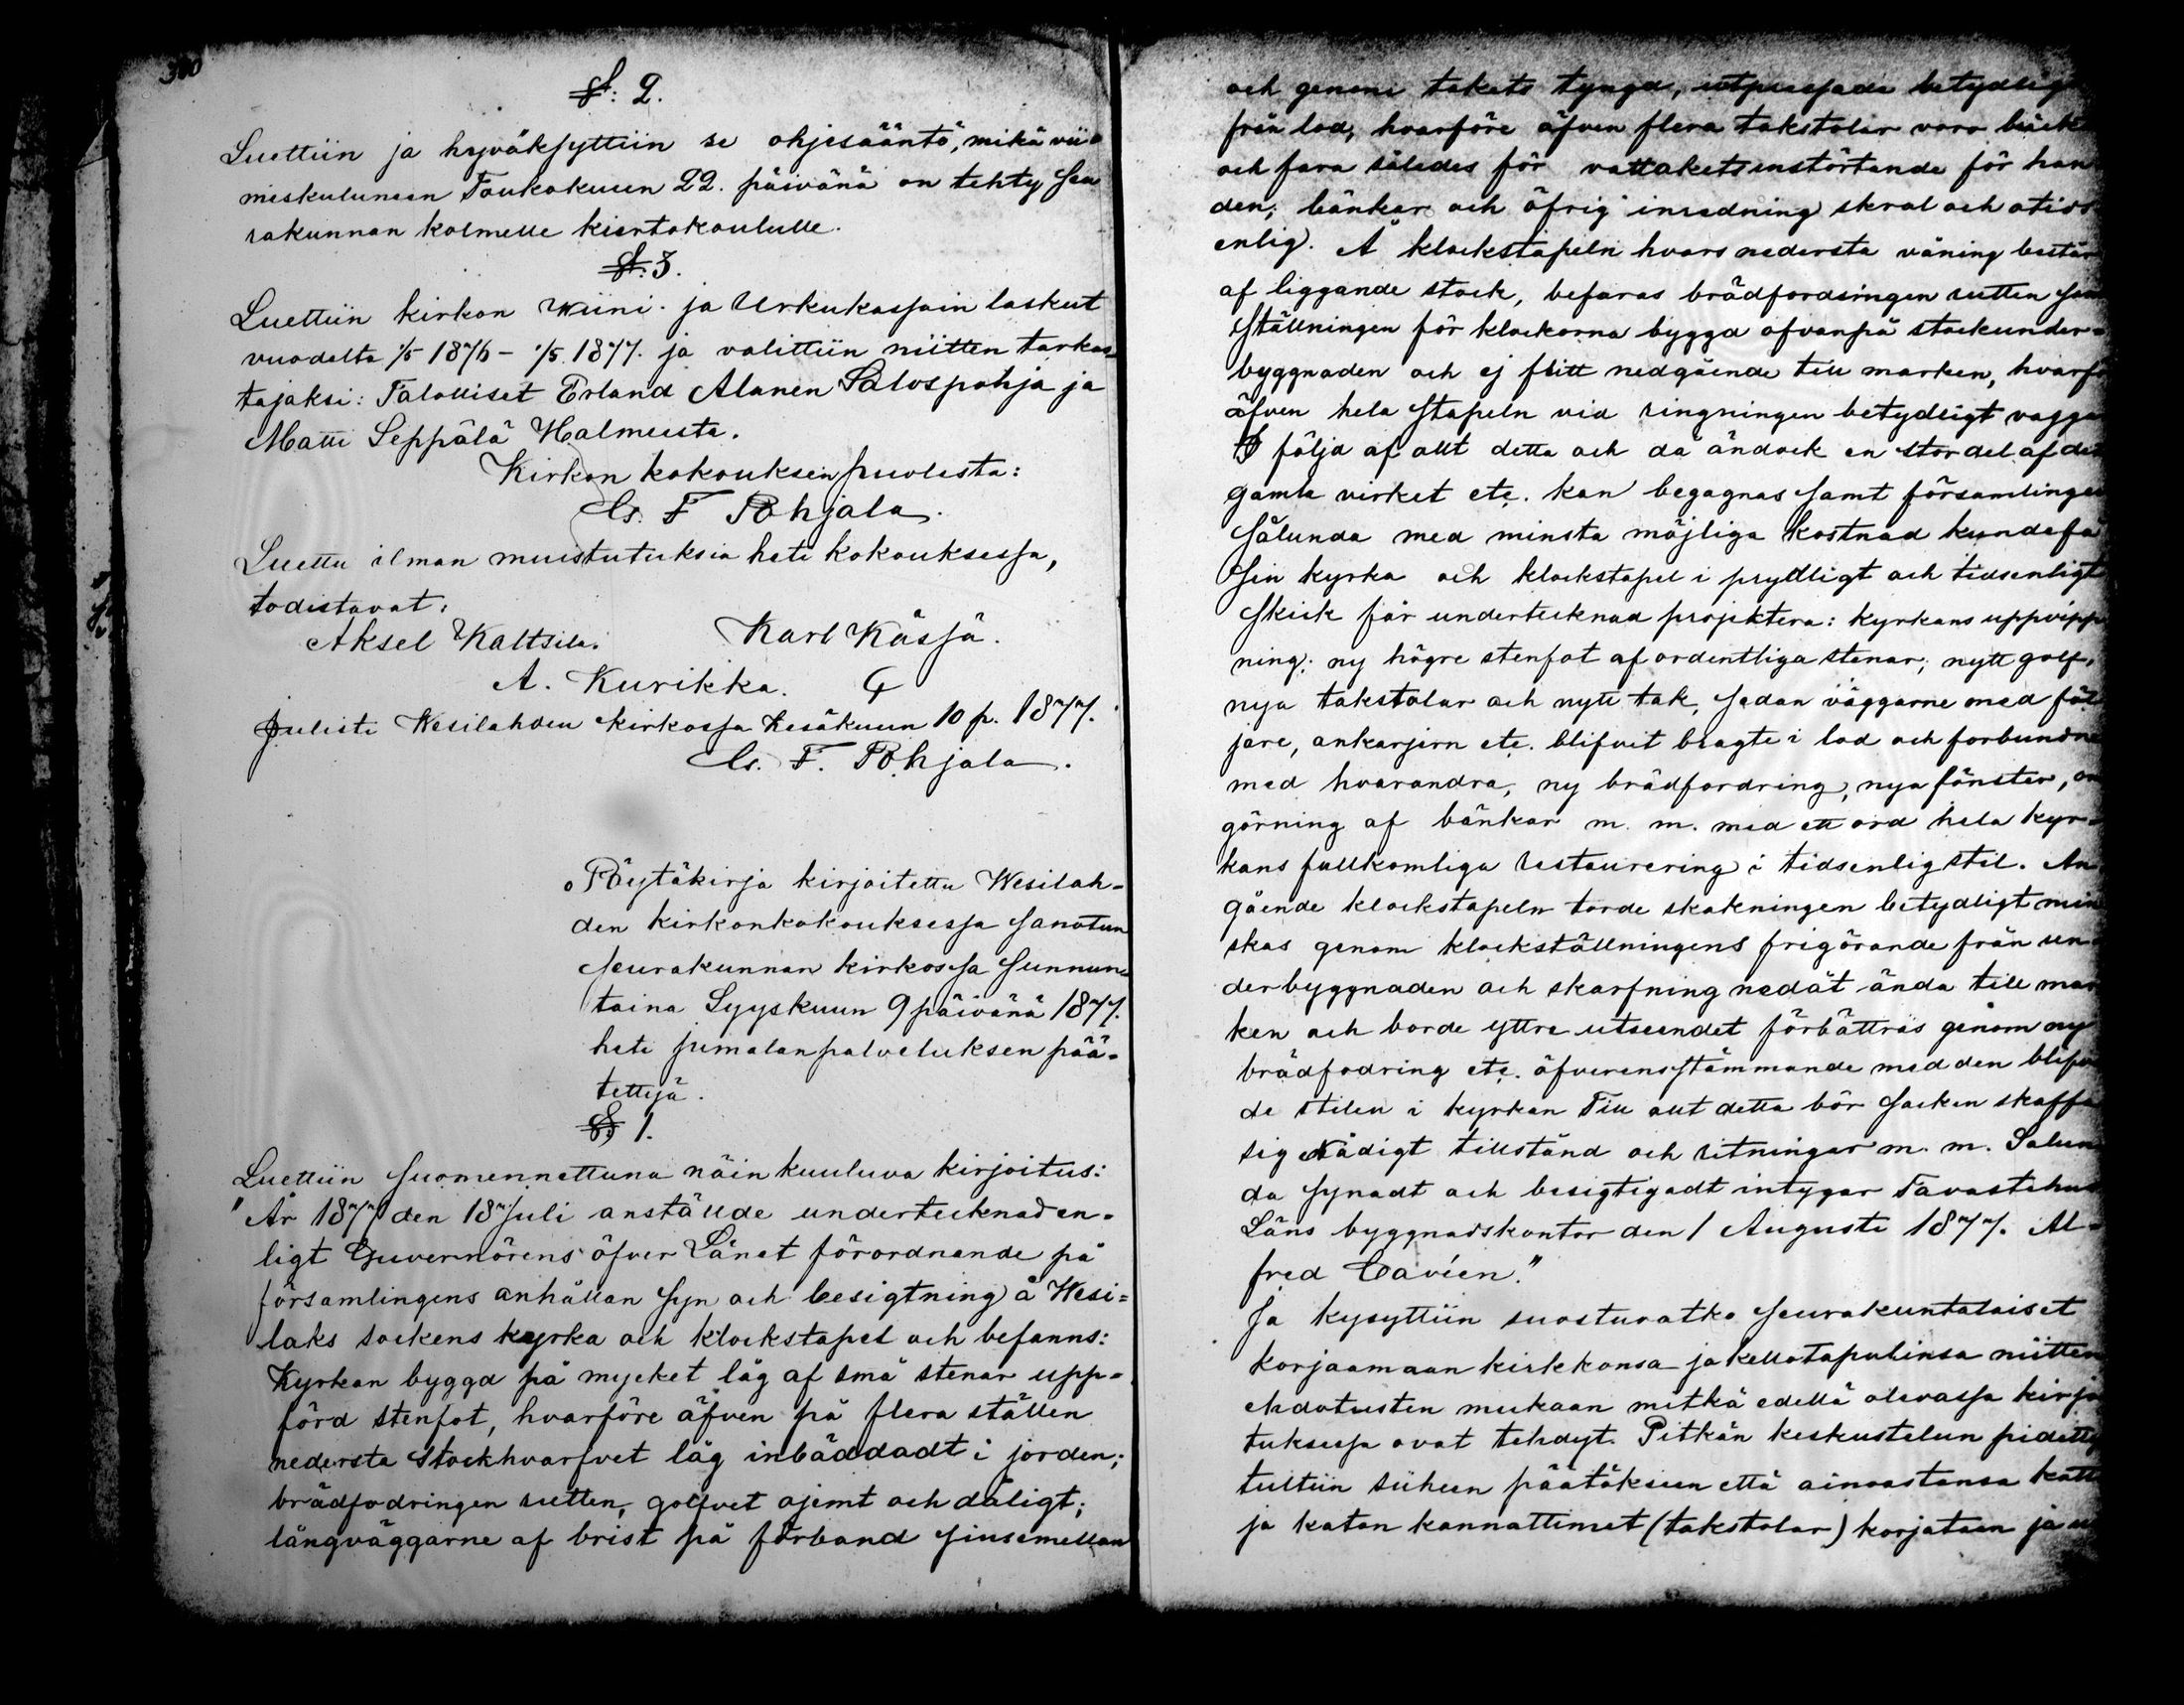 300
§: 2.
Luettiin ja hyväksyttiin se ohjesääntö, mikä vii-
meskuluneen Toukokuun 22. päivänä on tehty seu
rakunnan kolmelle kiertokoululle.
§: 3.
Luettiin kirkon Wiini- ja Urkukassain laskut
vuodelta 1/5 1876 - 1/5 1877. ja valittiin niitten tarkas-
tajaksi: Talolliset Erland Alanen Salospohja ja
Matti Seppälä Halmeesta.
Kirkon kokouksen puolesta:
Cs. F Pohjala.
Luettu ilman muistutuksia heti kokouksessa,
todistavat:
Aksel Kaltsila. Karl Kässä.
A. Kurikka.
Julisti Wesilahden kirkossa Kesäkuun 10 p. 1877.
Cs. F. Pohjala.
Pöytäkirja kirjoitettu Wesilah-
den kirkonkokouksessa sanotun
seurakunnan kirkossa sunnun-
taina Syyskuun 9 päivänä 1877.
heti jumalanpalveluksen pää-
tettyä.
§: 1.
Luettiin suomennettuna näin kuuluva kirjoitus:
"År 1877 den 18 Juli anställde undertecknad en-
ligt Guvernörens öfver Länet förordnande på
församlingens anhållan syn och besigtning å Wesi-
laks sockens kyrka och klockstapel och befanns:
Kyrkan byggd på mycket låg af små stenar upp-
förd stenfot, hvarföre äfven på flera ställen
nedersta stockhvarfvet låg inbäddadt i jorden;
brädfodringen rutten, golfvet ojemt och dåligt;
långväggarne af brist på förband sinsemellan
och genom takets tyngd, utpressade betydlig
från lod, hvarföre äfven flera takstolar voro bräck
och fara således för vattakets instörtande för han
den; bänkar och öfrig inredning skral och otids
enlig. Å klockstapeln hvars nedersta våning består
af liggande stock, befaras brädfordringen rutten sam
ställningen för klockorna byggd ofvanpå stockunder-
byggnaden och ej fritt nedgående till marken, hvarfö
äfven hela stapeln vid ringningen betydligt vagga
I följd af allt detta och då ändock en stor del af det
gamla virket etc. kan begagnas samt församlingen
sålunda med minsta möjliga kostnad kunde få
sin kyrka och klockstapel i prydligt och tidsenligt
skick får undertecknad projektera: kyrkans uppvipp
ning; ny högre stenfot af ordentliga stenar; nytt golf,
nya takstolar och nytt tak, sedan väggarne med föl
jare, ankarjern etc. blifvit bragte i lod och forbundne
med hvarandra, ny brädfordring, nya fönster, om
görning af bänkar m. m. med ett ord hela kyr-
kans fullkomliga restaurering i tidsenlig stil. An
gående klockstapeln torde skakningen betydligt min
skas genom klockställningens frigörande från un-
derbyggnaden och skarfning nedåt ända till mar
ken och borde yttre utseendet förbättras genom ny
brädfodring etc. öfverensstämmande med den blifvan
de stilen i kyrkan Till allt detta bör socken skaffa
sig Nådigt tillstånd och ritningar m. m. Salun
da synadt och besigtigadt intygar Tavastehus
Läns byggnadskontor den 1 Augusti 1877. Al-
fred Cavién."
Ja kysyttiin suostuvatko seurakuntalaiset
korjaamaan kirkkonsa ja kellotapulinsa niitten
ehdotusten mukaan mitkä edellä olevassa kirjo
tuksessa ovat tehdyt. Pitkän keskustelun pidetty
tultiin siiheen päätökseen että ainoastansa katto
ja katon kannattimet (takstolar) korjataan ja u